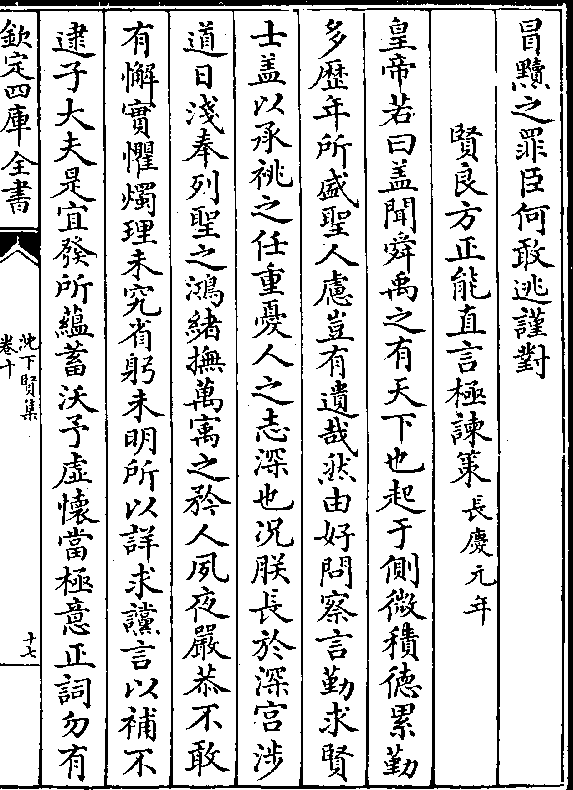 冒黷之罪臣何敢逃謹對
賢良方正能直言極諫策長慶元年
皇帝若曰盖聞舜禹之有天下也起于側微積徳累勤
多歴年所盛聖人慮豈有遺哉然由好問察言勤求賢
士盖以承祧之任重憂人之志深也况朕長於深宫涉
道日淺奉列聖之鴻緒撫萬寓之矜人夙夜嚴恭不敢
有懈實懼燭理未究省躬未明所以詳求讜言以補不
逮子大夫是宜發所藴蓄沃予虚懐當極意正詞勿有
欽定四庫全書
沈下賢集
卷十
十七